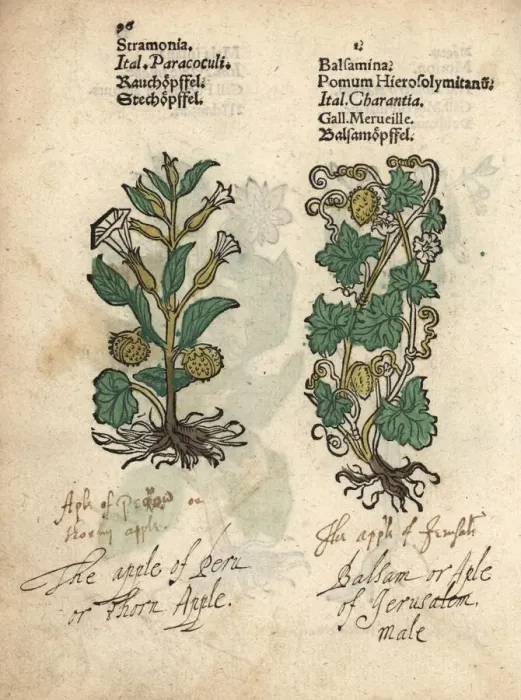 96
Stramonia.
Ital. Paracoculi.
Rauchöpffel.
Stechöpffel.
Balsamina.
Pomum Hierosolymitanū.
Ital. Charantia.
Gall. Merueille.
Balsamöpffel.
Aple of Peru or
thorny apple.
The apple of Peru
or Thorn Apple.
The apple of Jerusale
Balsam or Aple
of Jerusalem.
male